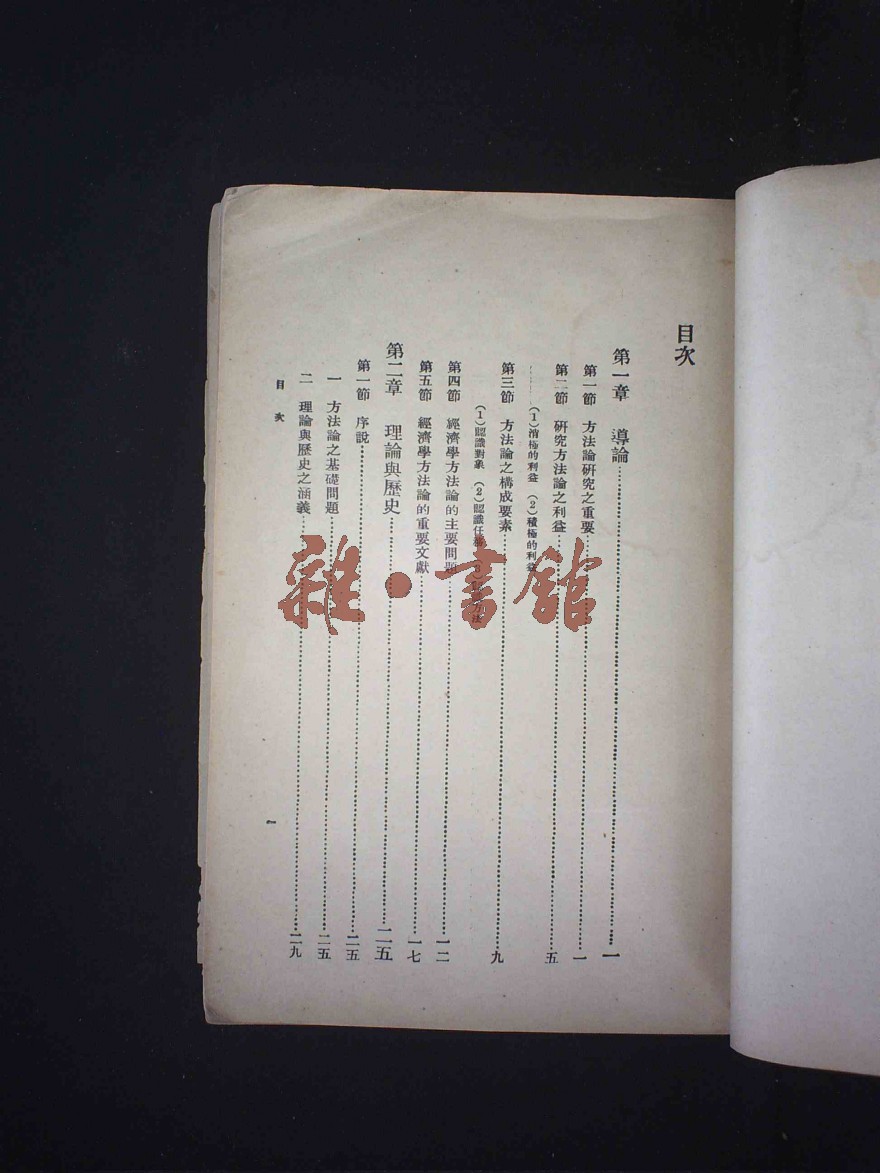 目次
第一章 導論 一
第一節 方法論研究之重要 一
第二節 研究方法論之利益 五
(1)消極的利益 (2)積極的利益
第三節 方法論之構成要素 九
(1)認識對象 (2)認識任 (3) 方法
第四節 經濟學方法論的主要問題 一二
第五節 經濟學方法論的重要文獻 一七
第二章 理論與歷史 二五
第一節 序說 二五
一 方法論之基礎問題 二五
二 理論與歷史之涵義 二九
目次
一
雜·書館